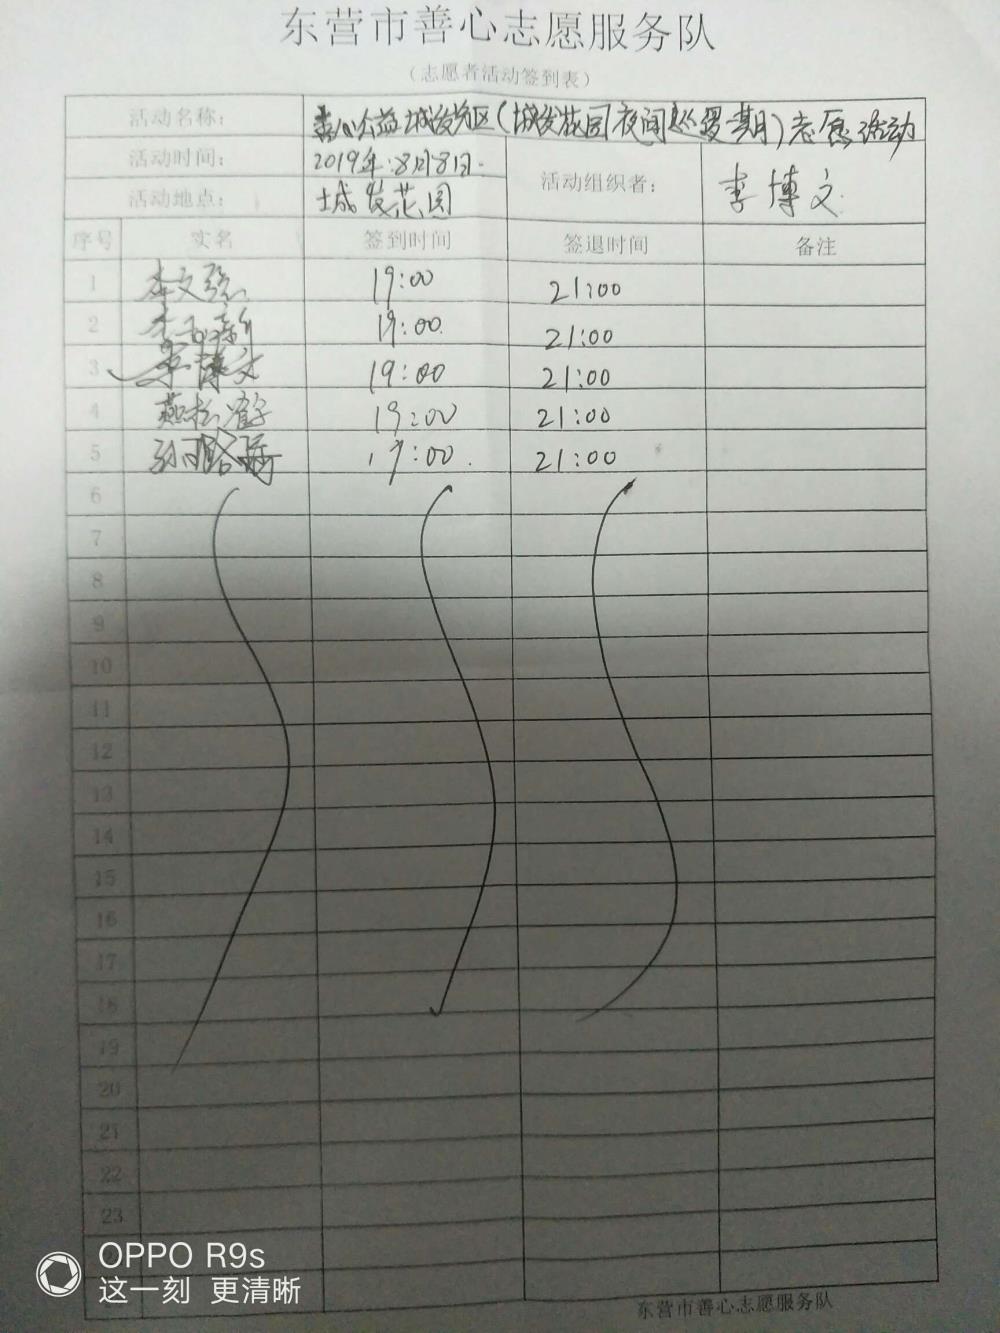 东营市善心志愿服务队
（志愿者活动签到表）
活动名称： 善心公益城发花园区（城发花园夜间巡逻 期）志愿活动
活动时间： 2019年.8月8日.
活动组织者： 李博文
活动地点： 城发花园
序号 实名 签到时间 签退时间 备注
1 李文强 19:00 21:00
2 李 新 19:00. 21:00
3 李博文 19:00 21:00
4 燕松鹤 19:00 21:00
5 19:00. 21:00
6
7
8
9
10
11
12
13
14
15
16
17
18
19
20
21
22
23
东营市善心志愿服务队
OPPO R9s
这一刻 更清晰